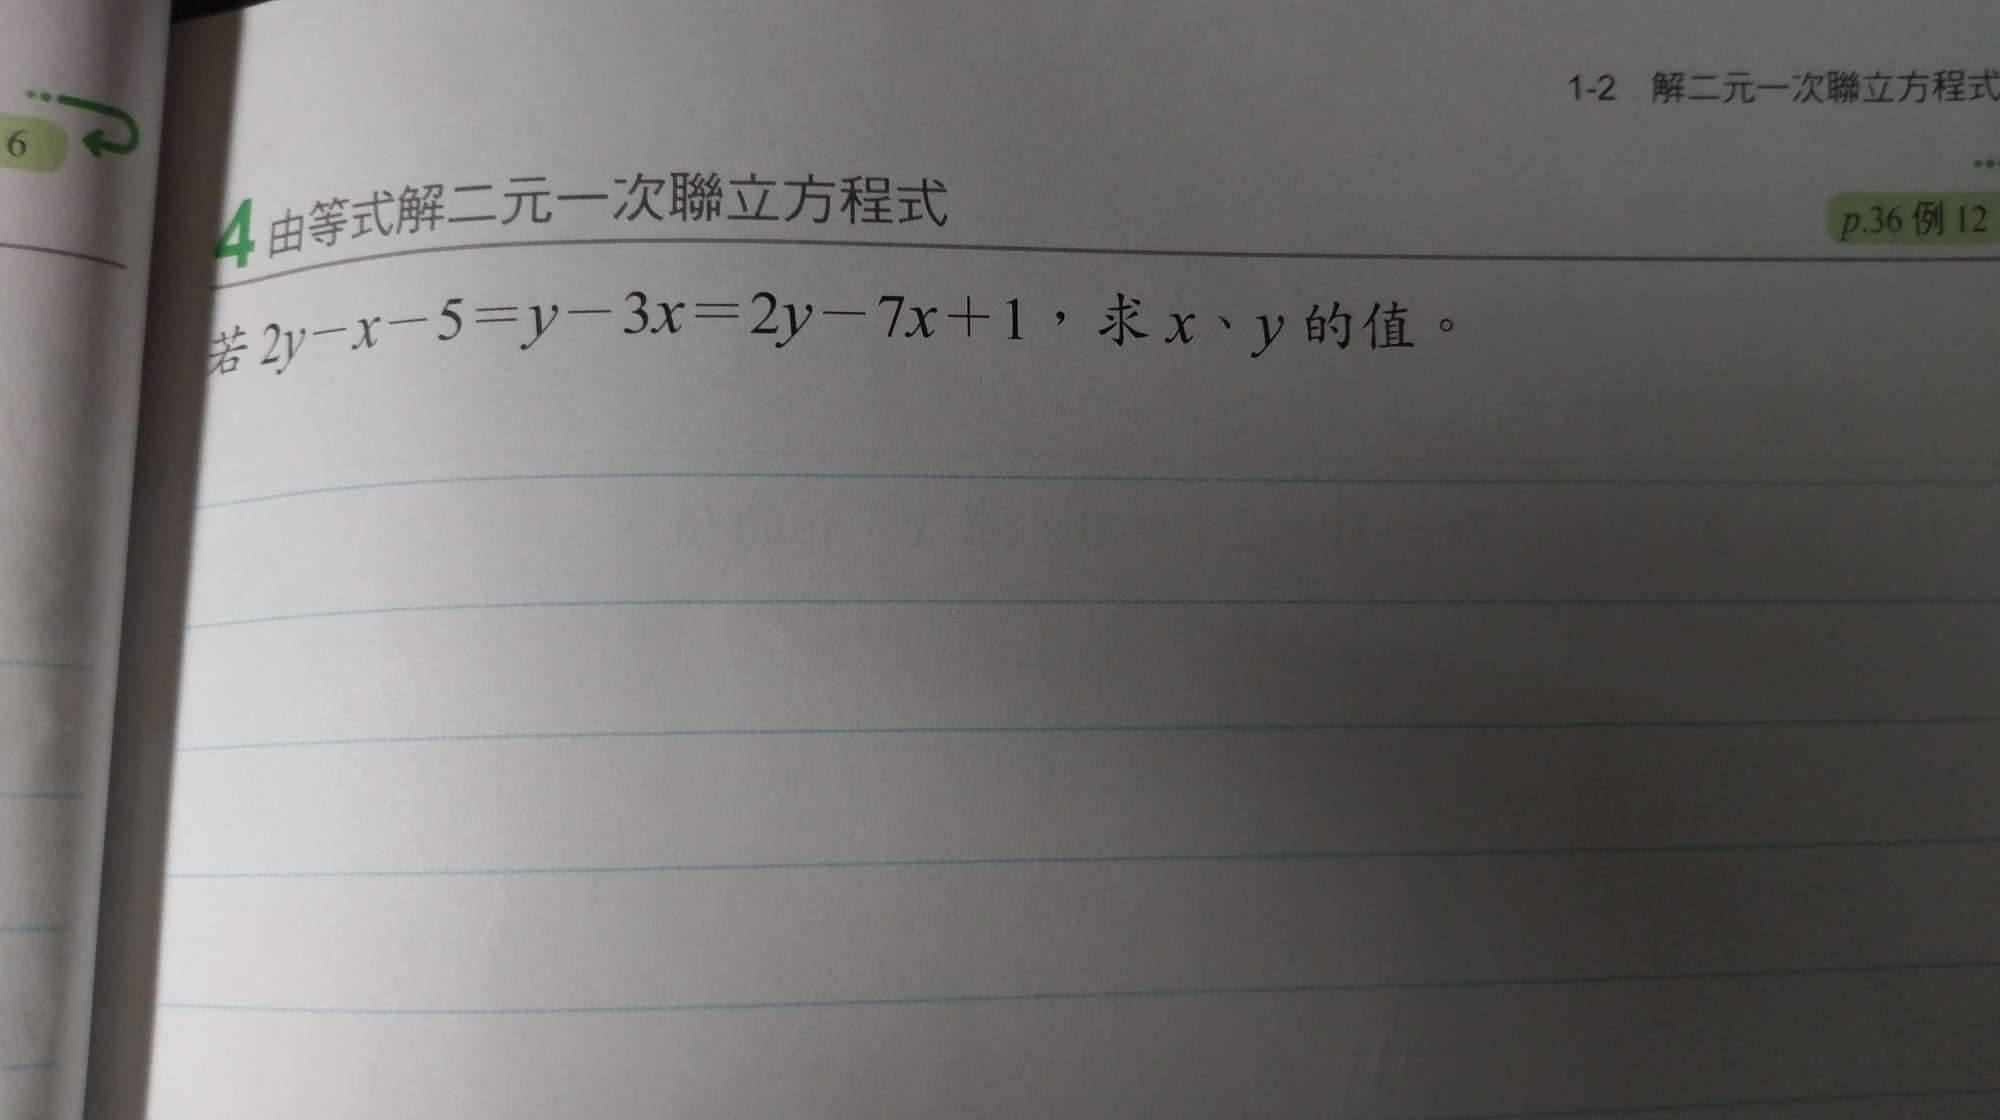 6
1-2 解二元一次聯立方程式
4 由等式解二元一次聯立方程式
p.36 例 12
若 2y－x－5＝y－3x＝2y－7x＋1，求 x、y 的值。